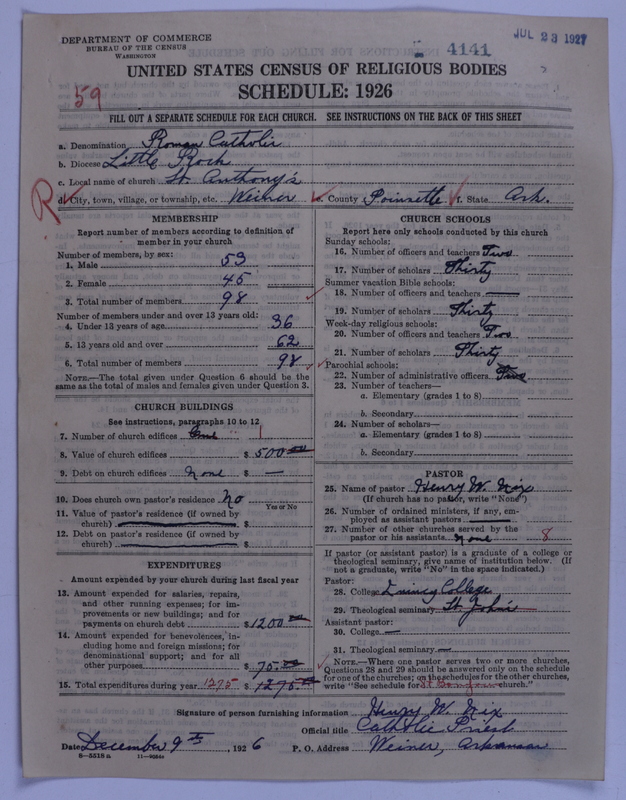 DEPARTMENT OF COMMERCE
BUREAU OF THE CENSUS
WASHINGTON
4141
JUL 23 1927
UNITED STATES CENSUS OF RELIGIOUS BODIES
SCHEDULE: 1926
59
FILL OUT A SEPARATE SCHEDULE FOR EACH CHURCH. SEE INSTRUCTIONS ON THE BACK OF THIS SHEET
a. Denomination Roman Catholic
b. Diocese Little Rock
c. Local name of church St. Anthony's
R
d. City, town, village, or township, etc. Weiner e. County Poinsette f. State Ark.
MEMBERSHIP
Report number of members according to definition of member in your church
Number of members, by sex:
1. Male 53
2. Female 45
3. Total number of members 98
Number of members under and over 13 years old:
4. Under 13 years of age 36
5. 13 years old and over 62
6. Total number of members 98
NOTE.—The total given under Question 6 should be the
same as the total of males and females given under Question 3.
CHURCH BUILDINGS
See instructions, paragraphs 10 to 12
7. Number of church edifices One 1
8. Value of church edifices $ 500 00
9. Debt on church edifices None $ —
10. Does church own pastor's residence No
Yes or No
11. Value of pastor's residence (if owned by
church) $
12. Debt on pastor's residence (if owned by
church) $
EXPENDITURES
Amount expended by your church during last fiscal year
13. Amount expended for salaries, repairs,
and other running expenses; for im-
provements or new buildings; and for
payments on church debt $ 1200 00
14. Amount expended for benevolences, in-
cluding home and foreign missions; for
denominational support; and for all
other purposes $ 75.00
15. Total expenditures during year 1275 $ 1275.00
CHURCH SCHOOLS
Report here only schools conducted by this church
Sunday schools:
16. Number of officers and teachers Two
17. Number of scholars Thirty
Summer vacation Bible schools:
18. Number of officers and teachers —
19. Number of scholars Thirty
Week-day religious schools:
20. Number of officers and teachers Two
21. Number of scholars Thirty
Parochial schools:
22. Number of administrative officers Two
23. Number of teachers—
a. Elementary (grades 1 to 8)
b. Secondary
24. Number of scholars—
a. Elementary (grades 1 to 8)
b. Secondary
PASTOR
25. Name of pastor Henry W. Nix
(If church has no pastor, write "None")
26. Number of ordained ministers, if any, em-
ployed as assistant pastors —
27. Number of other churches served by the
pastor or his assistants None 8
If pastor (or assistant pastor) is a graduate of a college or
theological seminary, give name of institution below. (If
not a graduate, write "No" in the space indicated.)
Pastor:
28. College Quincy College
29. Theological seminary St. John's
Assistant pastor:
30. College —
31. Theological seminary —
NOTE.—Where one pastor serves two or more churches,
Questions 28 and 29 should be answered only on the schedule
for one of the churches; on the schedules for the other churches,
write "See schedule for church."
Signature of person furnishing information Henry W. Nix
Official title Catholic Priest
Date December 9th, 1926 P. O. Address Weiner, Arkansas
8—5518 a